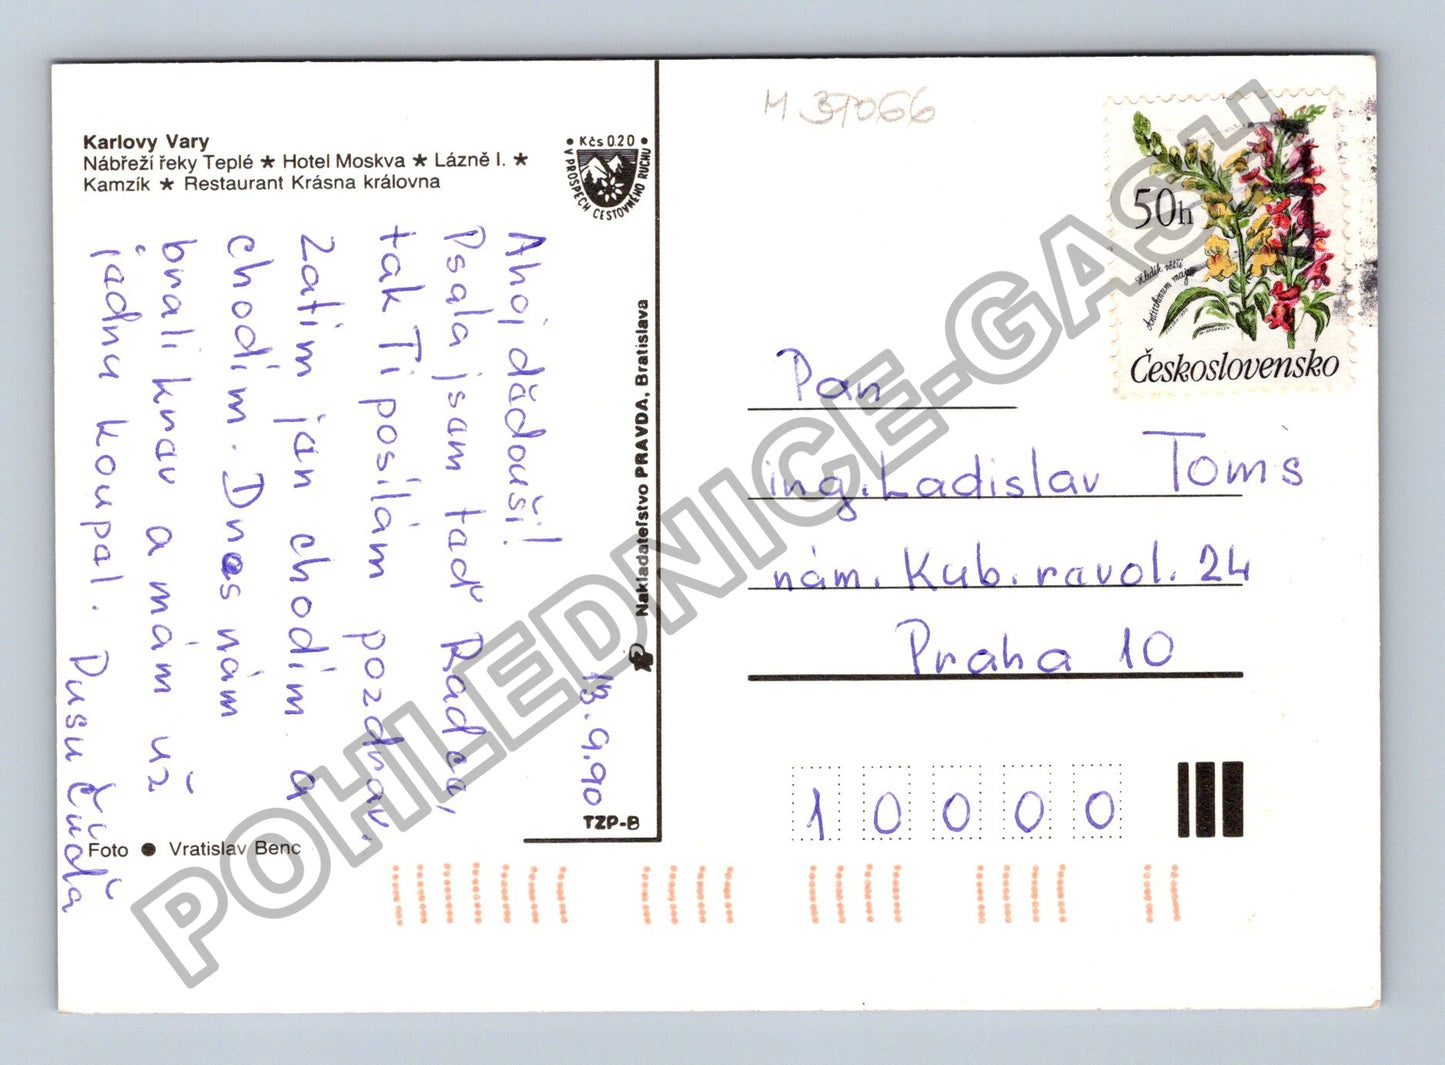 Karlovy Vary
Nábřeží řeky Teplé ★ Hotel Moskva ★ Lázně I. ★
Kamzík ★ Restaurant Krásna královna
• Kčs 0.20 •
V PROSPĚCH CESTOVNÉHO RUCHU
13.9.90
Ahoj dědouši!
Psala jsem teď Radce,
tak Ti posílám pozdrav.
Zatim jen chodím a
chodím. Dnes nám
brali krev a mám už
jednu koupel.
Nakladateľstvo PRAVDA, Bratislava
TZP-B
Foto ● Vratislav Benc
M 37066
50h
Hledík větší
Antirrhinum majus
Československo
Pan
ing. Ladislav Toms
nám. Kub. revol. 24
Praha 10
1 0 0 0 0
POHLEDNICE-GASH